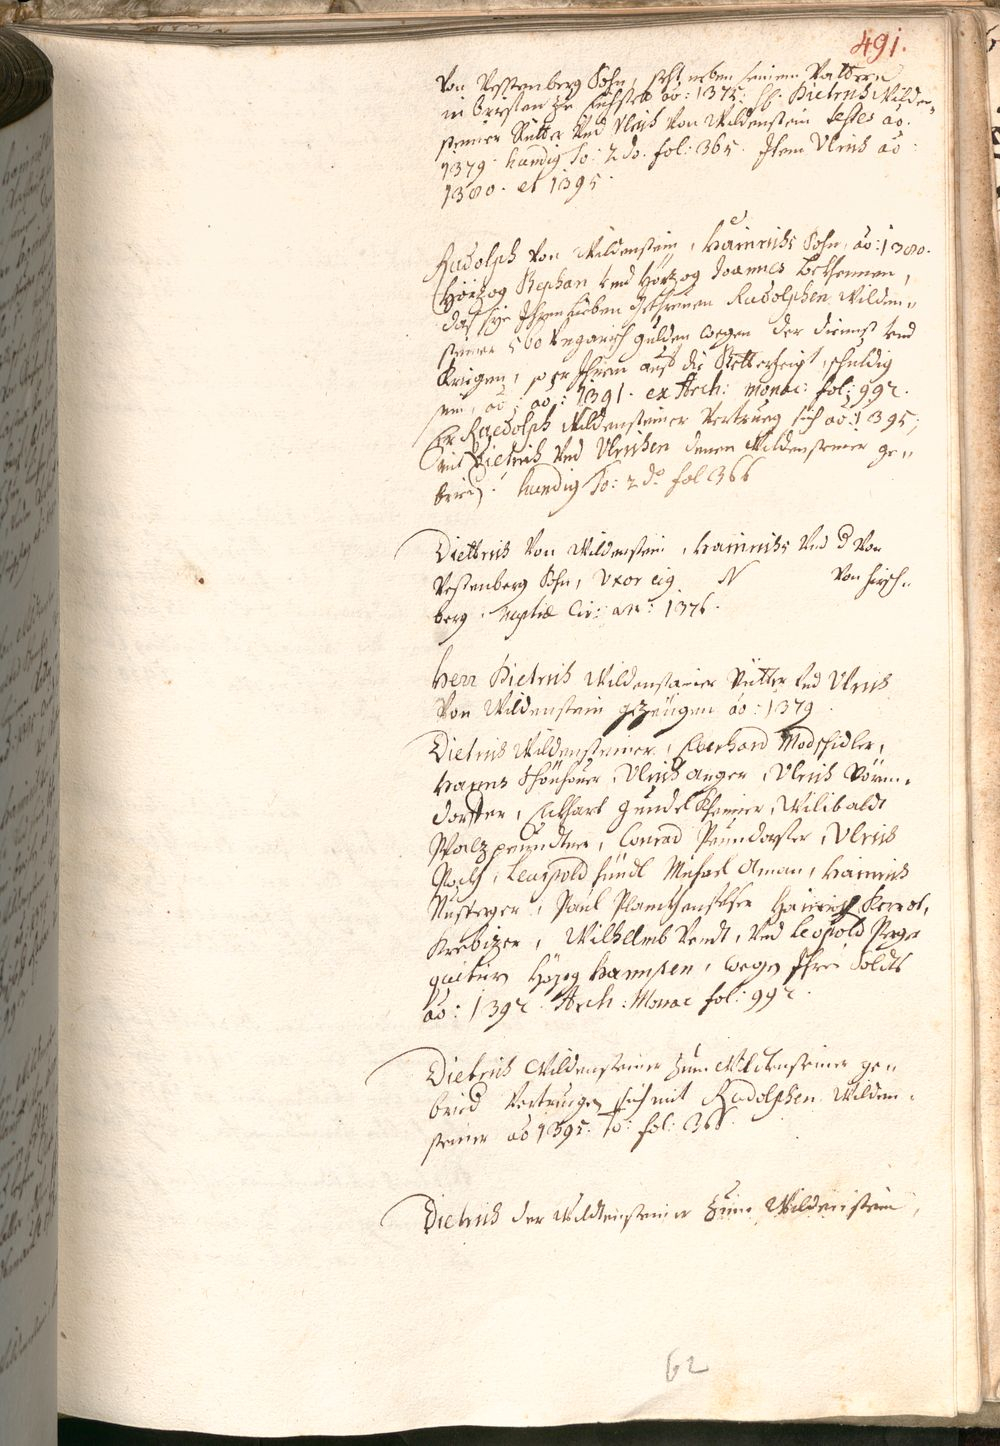 491.
Von Vestenberg Sohn, steht neben seinem Vattern
in Briefen zu Eichstett ao: 1375. Hr. Dietrich Wilden-
stainer Ritter Vnd Vlrich Von Wildenstein testes ao.
1379. hundig To: 2do. fol: 365. Item Vlrich ao:
1380. et 1395.
Rudolph Von Wildenstein, Hainrichs Sohn, ao: 1380.
Hörzog Stephan vnd Hörzog Joannes bekhennen,
das sye Ihren lieben Getreuen Rudolphen Wilden„
stainer 560 Vngarisch gulden wegen der dienst vnd
Kriegen, so er Ihnen auf die schuldig
sein, ao: 1391. ex Arch: monac: fol: 992.
Er Rudolph Wildensteiner Vertrueg sich ao: 1395,
mit Dietrich Vnd Vlrichen denen Wildenstainer ge„
bried. hundig To: 2do fol 366
Diettrich Von Wildenstein, Hainrichs Vnd d Von
Vestenberg Sohn, Vxor eig N Von Hirsch„
berg. Nuptiæ Cir: an: 1376.
Herr Dietrich Wildenstainer Ritter Vnd Vlrich
Von Wildenstein gezeugen ao: 1379.
Dietrich Wildensteiner, Eberhard Modschidler,
Hanns, Vlrich Anger, Vlrich
dorffer, Ekhart Gundelkheimer, Wilibaldt
Conrad Peundorffer, Vlrich
Leupold Michael Aman, Hainrich
Nusperger, Paul Hainrich
Wilhelmb Vendt, Vnd Leopold
quitirn Hörzog Hannsen, wegen Ihres Soldts
ao: 1392. Arch: Monac fol: 992.
Dietrich Wildensteiner zum Wildenstainer ge„
bried Vertrugen sich mit Rudolphen Wilden„
stainer ao 1395. To: fol: 366.
Dietrich der Wildtenstainer zum Wildenstein,
62